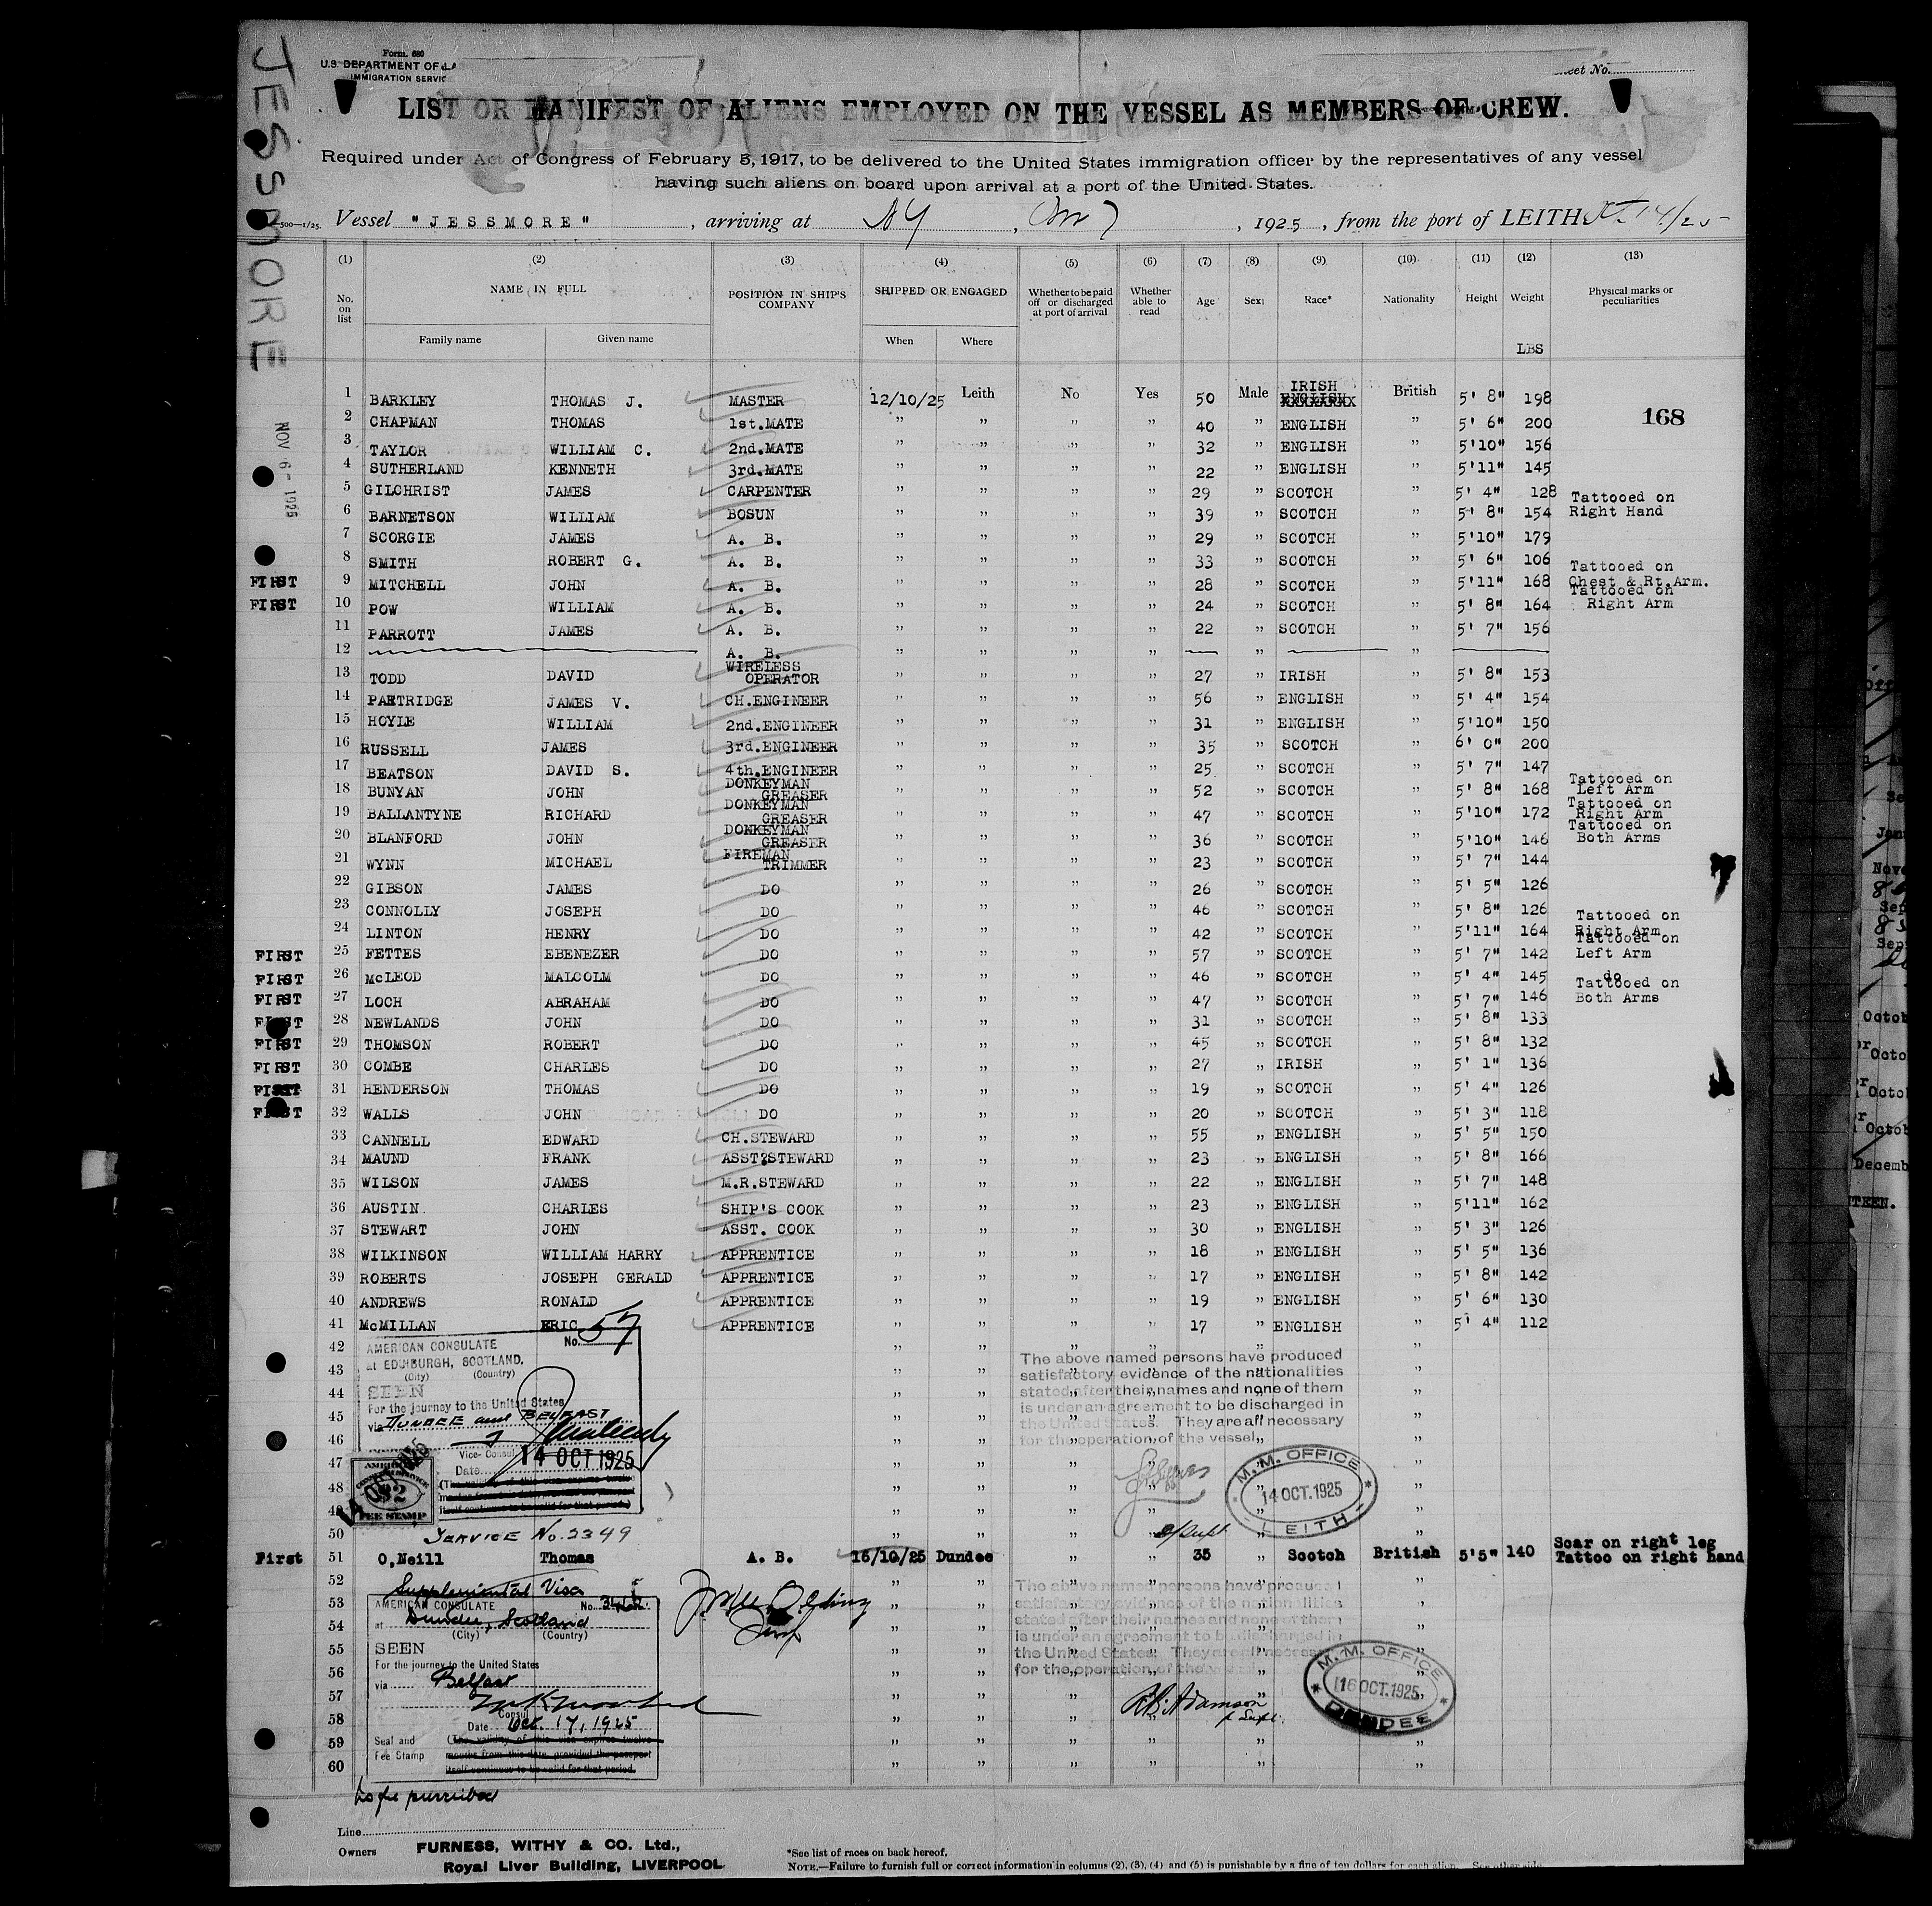 JESSMORE
NOV 6- 1925
Form. 680
U.S. DEPARTMENT OF LA
IMMIGRATION SERVIC
eet No.
LIST OR MANIFEST OF ALIENS EMPLOYED ON THE VESSEL AS MEMBERS OF CREW.
Required under Act of Congress of February 5, 1917, to be delivered to the United States immigration officer by the representatives of any vessel
having such aliens on board upon arrival at a port of the United States.
500—1/25. Vessel "JESSMORE", arriving at NY, 1925, from the port of LEITH Oct. 14/25
(1) (2) (3) (4) (5) (6) (7) (8) (9) (10) (11) (12) (13)
No. on list NAME IN FULL POSITION IN SHIP'S COMPANY SHIPPED OR ENGAGED Whether to be paid off or discharged at port of arrival Whether able to read Age Sex Race* Nationality Height Weight Physical marks or peculiarities
Family name Given name When Where LBS
1 BARKLEY THOMAS J. MASTER 12/10/25 Leith No Yes 50 Male IRISH ENGLISH British 5' 8" 198
168
2 CHAPMAN THOMAS 1st.MATE " " " " 40 " ENGLISH " 5' 6" 200
3 TAYLOR WILLIAM C. 2nd.MATE " " " " 32 " ENGLISH " 5'10" 156
4 SUTHERLAND KENNETH 3rd.MATE " " " " 22 " ENGLISH " 5'11" 145
5 GILCHRIST JAMES CARPENTER " " " " 29 " SCOTCH " 5' 4" 128 Tattooed on
6 BARNETSON WILLIAM BOSUN " " " " 39 " SCOTCH " 5' 8" 154 Right Hand
7 SCORGIE JAMES A. B. " " " " 29 " SCOTCH " 5'10" 179
8 SMITH ROBERT G. A. B. " " " " 33 " SCOTCH " 5' 6" 106 Tattooed on
FIRST 9 MITCHELL JOHN A. B. " " " " 28 " SCOTCH " 5'11" 168 Chest & Rt.Arm.
Tattooed on
FIRST 10 POW WILLIAM A. B. " " " " 24 " SCOTCH " 5' 8" 164 Right Arm
11 PARROTT JAMES A. B. " " " " 22 " SCOTCH " 5' 7" 156
12 A. B. " " " " " "
13 TODD DAVID WIRELESS OPERATOR " " " " 27 " IRISH " 5' 8" 153
14 PARTRIDGE JAMES V. CH.ENGINEER " " " " 56 " ENGLISH " 5' 4" 154
15 HOYLE WILLIAM 2nd.ENGINEER " " " " 31 " ENGLISH " 5'10" 150
16 RUSSELL JAMES 3rd.ENGINEER " " " " 35 " SCOTCH " 6' 0" 200
17 BEATSON DAVID S. 4th.ENGINEER " " " " 25 " SCOTCH " 5' 7" 147
18 BUNYAN JOHN DONKEYMAN GREASER " " " " 52 " SCOTCH " 5' 8" 168 Tattooed on Left Arm
19 BALLANTYNE RICHARD DONKEYMAN GREASER " " " " 47 " SCOTCH " 5'10" 172 Tattooed on Right Arm
20 BLANFORD JOHN DONKEYMAN GREASER " " " " 36 " SCOTCH " 5'10" 146 Tattooed on Both Arms
21 WYNN MICHAEL FIREMAN TRIMMER " " " " 23 " SCOTCH " 5' 7" 144
22 GIBSON JAMES DO " " " " 26 " SCOTCH " 5' 5" 126
23 CONNOLLY JOSEPH DO " " " " 46 " SCOTCH " 5' 8" 126 Tattooed on
24 LINTON HENRY DO " " " " 42 " SCOTCH " 5'11" 164 Right Arm
Tattooed on
FIRST 25 FETTES EBENEZER DO " " " " 57 " SCOTCH " 5' 7" 142 Left Arm
FIRST 26 McLEOD MALCOLM DO " " " " 46 " SCOTCH " 5' 4" 145 do
Tattooed on
FIRST 27 LOCH ABRAHAM DO " " " " 47 " SCOTCH " 5' 7" 146 Both Arms
FIRST 28 NEWLANDS JOHN DO " " " " 31 " SCOTCH " 5' 8" 133
FIRST 29 THOMSON ROBERT DO " " " " 45 " SCOTCH " 5' 8" 132
FIRST 30 COMBE CHARLES DO " " " " 27 " IRISH " 5' 1" 136
FIRST 31 HENDERSON THOMAS DO " " " " 19 " SCOTCH " 5' 4" 126
FIRST 32 WALLS JOHN DO " " " " 20 " SCOTCH " 5' 3" 118
33 CANNELL EDWARD CH.STEWARD " " " " 55 " ENGLISH " 5' 5" 150
34 MAUND FRANK ASST.STEWARD " " " " 23 " ENGLISH " 5' 8" 166
35 WILSON JAMES M.R.STEWARD " " " " 22 " ENGLISH " 5' 7" 148
36 AUSTIN CHARLES SHIP'S COOK " " " " 23 " ENGLISH " 5'11" 162
37 STEWART JOHN ASST. COOK " " " " 30 " ENGLISH " 5' 3" 126
38 WILKINSON WILLIAM HARRY APPRENTICE " " " " 18 " ENGLISH " 5' 5" 136
39 ROBERTS JOSEPH GERALD APPRENTICE " " " " 17 " ENGLISH " 5' 8" 142
40 ANDREWS RONALD APPRENTICE " " " " 19 " ENGLISH " 5' 6" 130
41 McMILLAN ERIC APPRENTICE " " " " 17 " ENGLISH " 5' 4" 112
42
43
44
45
46
47
48
49
50
AMERICAN CONSULATE No. 57
at EDINBURGH, SCOTLAND.
(City) (Country)
SEEN
For the journey to the United States
via DUNDEE and BELFAST
Vice-Consul
Date 14 OCT 1925
(The validity of this visa expires twelve
itself continues to be valid for that period.)
14 OCT 1925
AMERICAN
$2
FEE STAMP
SERVICE No. 2349
The above named persons have produced
satisfactory evidence of the nationalities
stated after their names and none of them
is under an agreement to be discharged in
the United States. They are all necessary
for the operation of the vessel.
M. M. OFFICE
14 OCT. 1925
LEITH
First 51 O,Neill Thomas A. B. 16/10/25 Dundee " " 35 " Scotch British 5'5" 140 Scar on right leg
Tattoo on right hand
52
53
54
55
56
57
58
59
60
Supplemental Visa
AMERICAN CONSULATE No.
at Dundee, Scotland
(City) (Country)
SEEN
For the journey to the United States
via Belfast
Consul
Date Oct. 17, 1925
Seal and Fee Stamp
(The validity of this visa expires twelve
months from this date, provided the passport
itself continues to be valid for that period.
No fee prescribed
The above named persons have produced
satisfactory evidence of the nationalities
stated after their names and none of them
is under an agreement to be discharged in
the United States. They are all necessary
for the operation of the
R.B. Adamson
M. M. OFFICE
16 OCT. 1925
DUNDEE
Line
Owners FURNESS, WITHY & CO. Ltd.,
Royal Liver Building, LIVERPOOL.
*See list of races on back hereof.
NOTE.—Failure to furnish full or correct information in columns (2), (3), (4) and (5) is punishable by a fine of ten dollars for each alien. See other side.